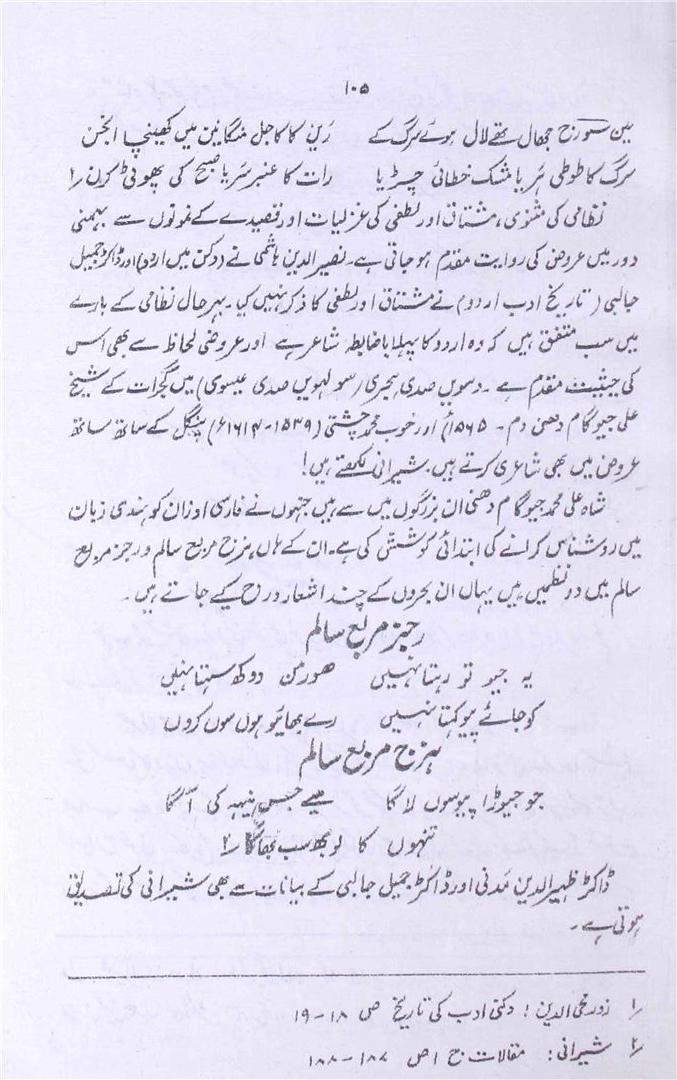 ۱۰۵
بین سورج جھال تھے لال ہوئے سرگ کے رین کا کاجل منگا نین میں کھینچا انجن
سرگ کا طوطی ہریا مشک خطائی چڑیا رات کا عنبر سریا صبح کی پھوٹی کرن /۱
نظامی کی مثنوی، مشتاق اور لطفی کی غزلیات اور قصیدے کے نمونوں سے بہمنی
دور میں عروض کی روایت مقدم ہو جاتی ہے۔ نصیر الدین ہاشمی نے (دکن میں اردو) اور ڈاکٹر جمیل
جالبی (تاریخ ادب اردو) نے مشتاق اور لطفی کا ذکر نہیں کیا۔ بہر حال نظامی کے بارے
میں سب متفق ہیں کہ وہ اردو کا پہلا باضابطہ شاعر ہے اور عروضی لحاظ سے بھی اس
کی حیثیت مقدم ہے۔ دسویں صدی ہجری (سولہویں صدی عیسوی) میں گجرات کے شیخ
علی جیو گام دھنی (م۔ ۱۵۶۵ء) اور خوب محمد چشتی (۱۵۳۹-۱۶۱۴ء) پنگل کے ساتھ ساتھ
عروض میں بھی شاعری کرتے ہیں۔ شیرانی لکھتے ہیں!
شاہ علی محمد جیو گام دھنی ان بزرگوں میں سے ہیں جنہوں نے فارسی اوزان کو ہندی زبان
میں روشناس کرانے کی ابتدائی کوشش کی ہے۔ ان کے ہاں ہزج مربع سالم و رجز مربع
سالم میں دو نظمیں ہیں یہاں ان بحروں کے چند اشعار درج کیے جاتے ہیں۔
رجز مربع سالم
یہ جیو تو رہتا نہیں ھور من دوکھ سہتا نہیں
کو جائے پیو کہتا نہیں رے بھائیو ہوں سوں کروں
ہزج مربع سالم
جو جیوڑا پیو سوں لاگا میسے جس نیہہ کی آگا
تنہوں کا لوبھ سب بھاگا /۲
ڈاکٹر ظہیر الدین مدنی اور ڈاکٹر جمیل جالبی کے بیانات سے بھی شیرانی کی تصدیق
ہوتی ہے۔
/۱ زور محی الدین: دکنی ادب کی تاریخ ص ۱۸-۱۹
/۲ شیرانی: مقالات ج ۱ ص ۱۸۷-۱۸۸